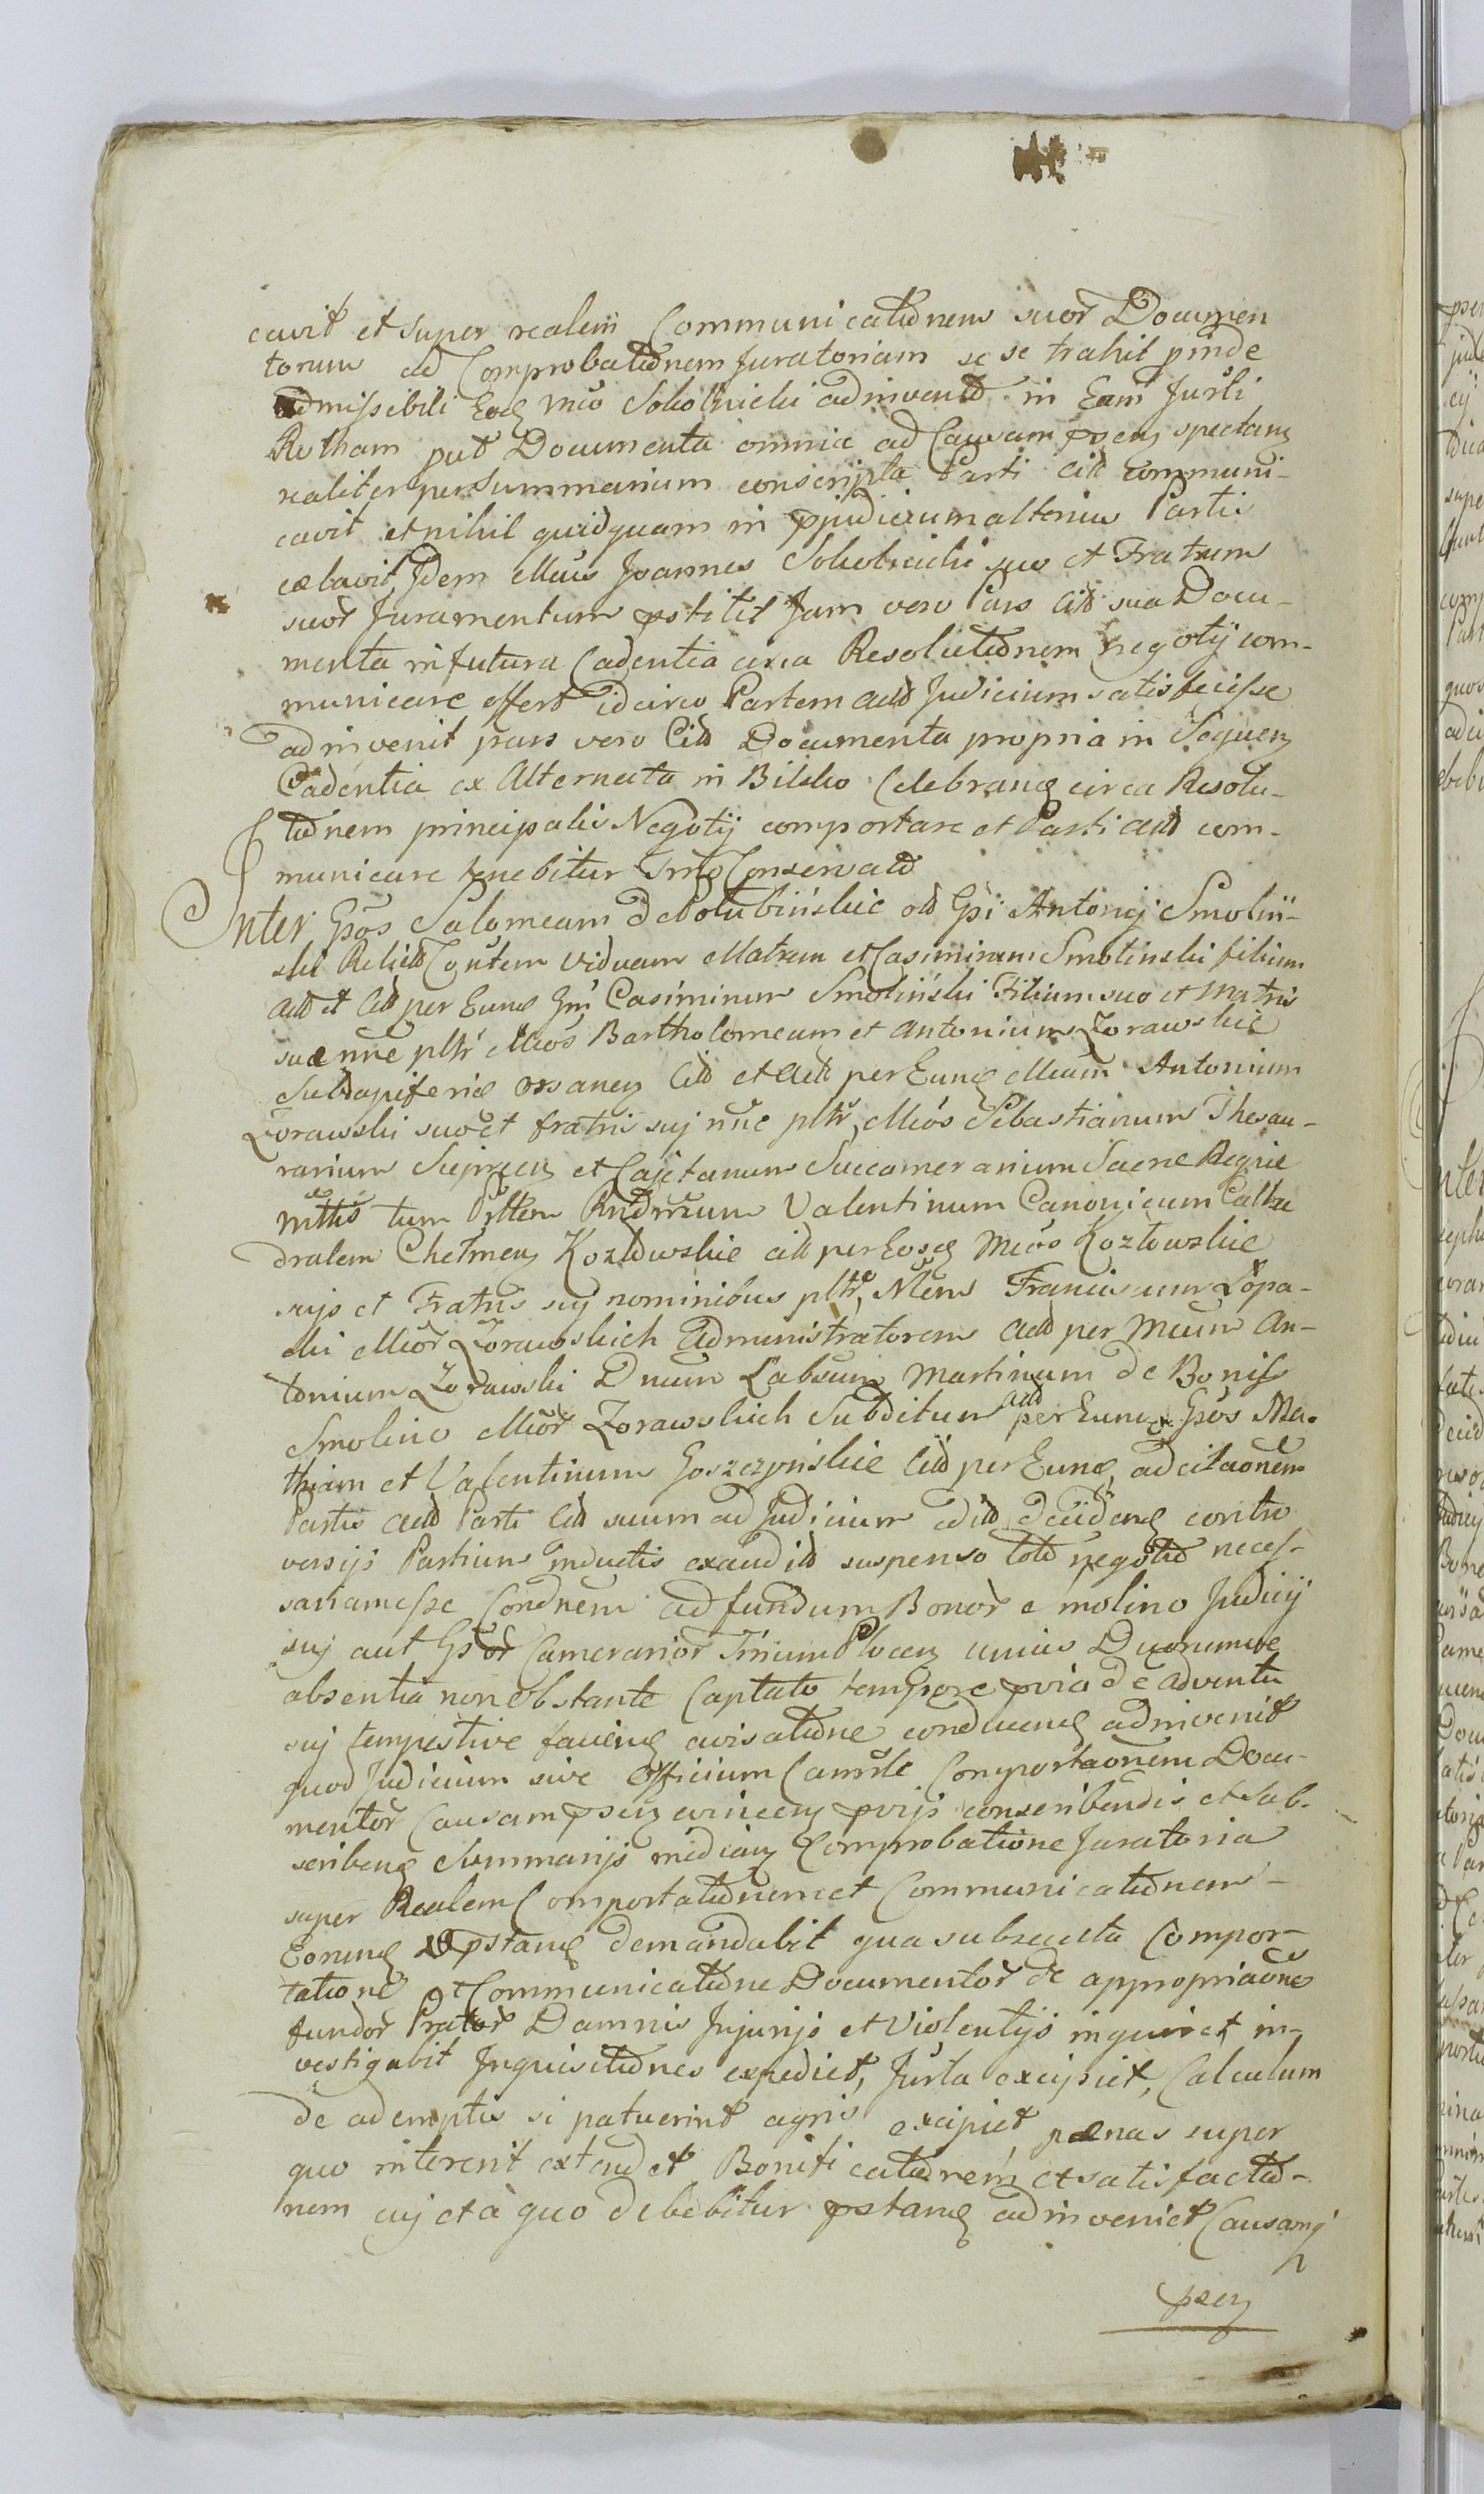 cavit et super realem Communicationem suor Documen
torum ad Comprobationem Juratoriam se se trahit pinde
admissibili Eoq Mco Sokolnicki adinvento in Eam Jurti
Rotham put Documenta omnia ad Causam psen spectan
realiter per Summarium conscripta Parti Citt communi-
cavit et nihil quidquam in pjudicium alterius Partis
celavit Idem Mcus Joannes Sokolnicki suo et Fratrum
suor Juramentum pstitit Jam vero Pars Citt sua Docu-
menta in futura Cadentia circa Resolutionem negotij com-
municare offert idcirco Partem Actt Judicium satisfecisse
adinvenit pars vero Citt Documenta propria in Sequen
Cadentia ex Alternata in Bilsko Celebranq circa Resolu-
tionem principalis Negotij comportare et Parti Actt com-
municare tenebitur Conservato
Inter Gsos Salomeam de Potubińskie Gsi Antonij Smoliń-
ski Relictt Contem viduam Matrem et Casimirum Smolinski filium
Actt et Citt per Eunq Gm Casimirum Smoliński Filium suo et Matris
suae nne pltr Mcos Bartholomeum et Antonium Zorawskie
Subdapiferid ssanen Citt et Actt per Eunq Mcum Antonium
Zorawski suo et fratris suj nne pltr, Mcos Sebastianum Thesau-
rarium et Cajetanum Succamerarium Sacrae Regiae
mttis tum Valentinum Canonicum Cathe
dralem Chełmen Kozłowskie citt per Eosq Mcos Kozłowskie
sujs et Fratris suj nominibus pltr, Mcm Franciscum Łopa-
cki Mcor Zorawskich Administratorem Actt per Mcum An-
tonium Zorawski Dnum Labsuin Martinum de Bonis
Smolino Mcor Zorawskich Subditum actt per Eunq Gsos Ma-
thiam et Valentinum Goszczyńskie Citt per Eunq, ad citaonem
Partis Actt Parti Citt suum ad Judicium editt Deciidenq contro
versijs Partium inductis exauditt suspenso toto negotio neces-
sariam esse Condnem ad fundum Bonor Smolino Judicij
suj aut Gsor Camerarior Trium Plocen unius Duorumve
absentia non obstante Captato tempore pvia de adventu
suj tempestive faciend avisatione conducenq adinvenit
quod Judicium sive Officium Camrle Comportaonem Docu-
mentor Causam psen evincen pvijs conscribendis et sub-
scribenq Summarijs median Comprobatione Juratoria
super Realem Comportationem et Communicationem -
Eorunq pstanq demandabit qua subsecuta Compor-
tatione et Communicatione Documentor de appropriaone
fundor Prator Damnis Injurijs et Violentijs inquiret in-
vestigabit Inquisitiones expediet, Jurta excipiet, Calculum
de ademptis si patuerint agris excipiet paenas super
quo intererit extendet Bonificationem et satisfactio-
nem cuj et à quo debebitur pstanq adinveniet Causamq
psen